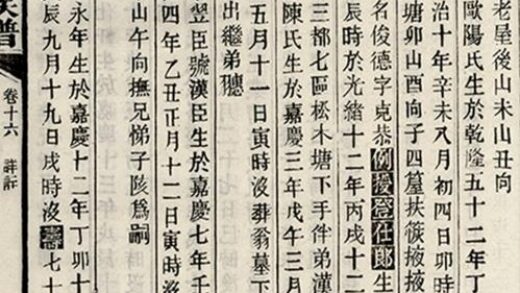 老屋後山未山丑向
歐陽氏生於乾隆五十二年丁
治十年辛未八月初四日卯時
塘卯山酉向子四墓扶篏掖掖
名俊德字克恭例授登仕郎生
辰時於光緒十二年丙戌十二
三都七區松木塘下手伴弟漢
陳氏生於嘉慶三年戊午三月
五月十一日寅時沒葬翁墓下
出繼弟聽
翌臣號漢臣生於嘉慶七年千
四年乙丑正月十二日寅時沒
山午向撫兄悌子陔為嗣
永年生於嘉慶十二年丁卯十
辰九月十九日戌時沒壽七十
族譜
卷十六